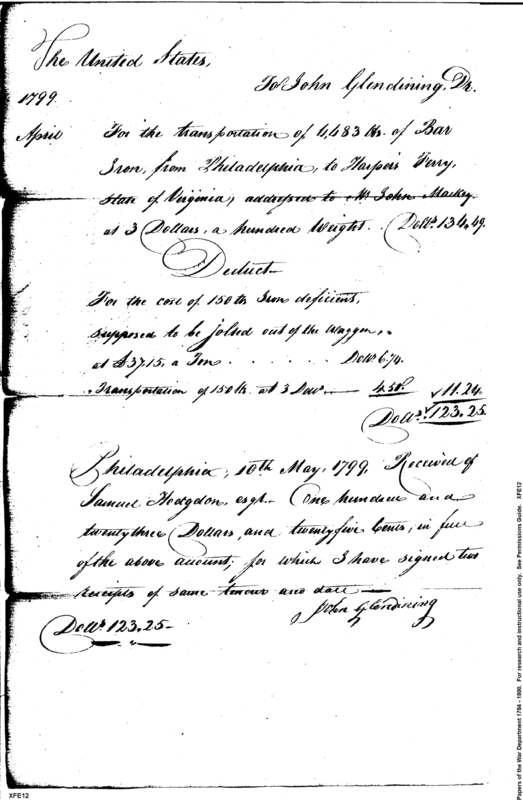 The United States,
To John Glendining, Dr.
1799.
April For the transportation of 4,483 lbs. of Bar
Iron, from Philadelphia, to Harper's Ferry,
State of Virginia; addressed to Mr. John Mackey
at 3 Dollars, a hundred Weight. Dolls. 134.49.
Deduct
For the cost of 150 lb Iron deficient,
supposed to be jolted out of the Waggon,
at £37.15, a Ton . . . . . . . Dolls. 6.74.
Transportation of 150 lb. at 3 Dolls. 4.50 11.24
Dolls. 123.25
Philadelphia, 10th May, 1799. Received of
Samuel Hodgdon, esqr. One hundred and
twenty three Dollars, and twenty five Cents, in full
of the above amount; for which I have signed two
receipts of same tenour and date
John Glendining
Dolls. 123.25
XFE12
Papers of the War Department 1784 - 1800. For research and instructional use only. See Permissions Guide. XFE12